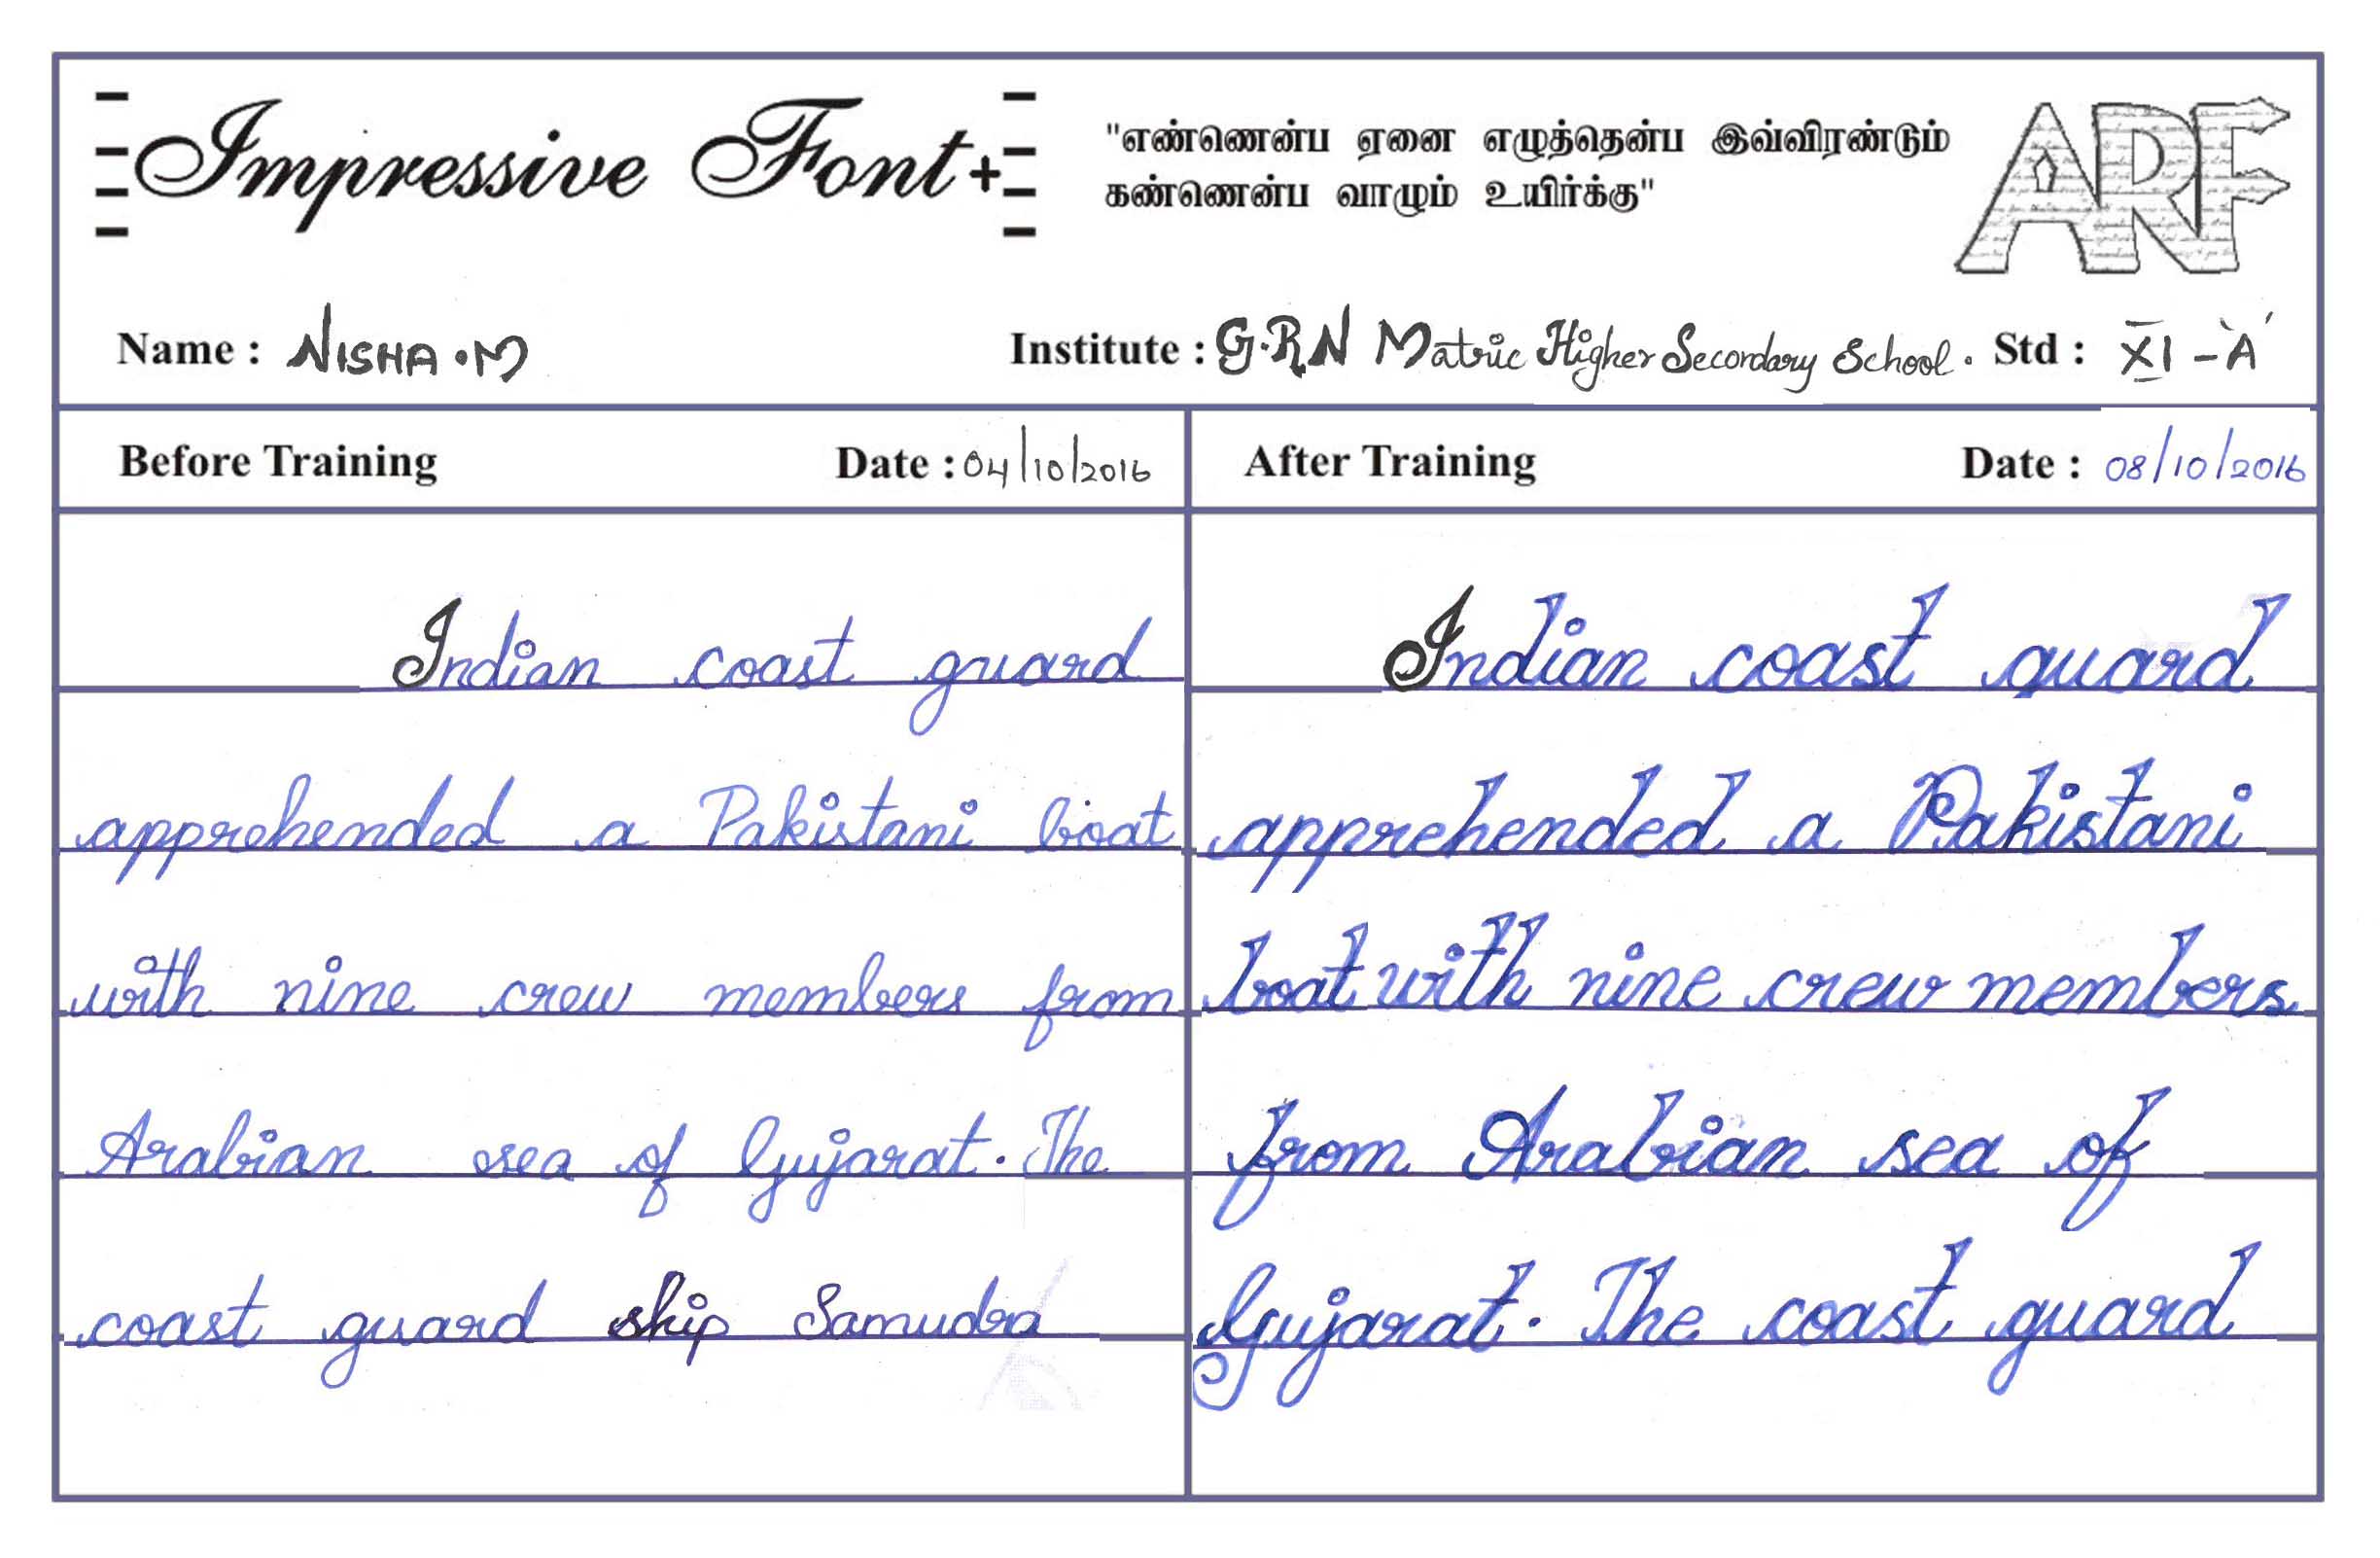 Impressive Font+
"எண்ணென்ப ஏனை எழுத்தென்ப இவ்விரண்டும்
கண்ணென்ப வாழும் உயிர்க்கு"
ARF
Name : NISHA.M
Institute : G.R.N Matric Higher Secondary School. Std : XI - 'A'
Before Training Date : 04/10/2016
Indian coast guard
apprehended a Pakistani boat
with nine crew members from
Arabian sea of Gujarat. The
coast guard ship Samudra
After Training Date : 08/10/2016
Indian coast guard
apprehended a Pakistani
boat with nine crew members
from Arabian sea of
Gujarat. The coast guard